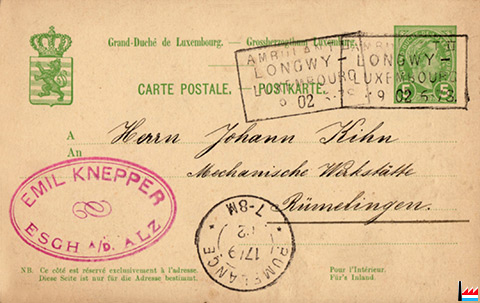 Grand-Duché de Luxembourg. — Grossherzogthum Luxemburg.
AMBULANT
LONGWY -
LUXEMBOURG
02
LONGWY -
LUXEMBOURG
9 02
CARTE POSTALE. — POSTKARTE.
5 5
A
An
Herrn Johann Kihn
Mechanische Werkstätte
Rümelingen.
EMIL KNEPPER
ESCH A/D. ALZ
7-8M
17/9
02
RUMELANGE
NB. Ce côté est réservé exclusivement à l'adresse.
Diese Seite ist nur für die Adresse bestimmt.
Pour l'Intérieur.
Für's Inland.